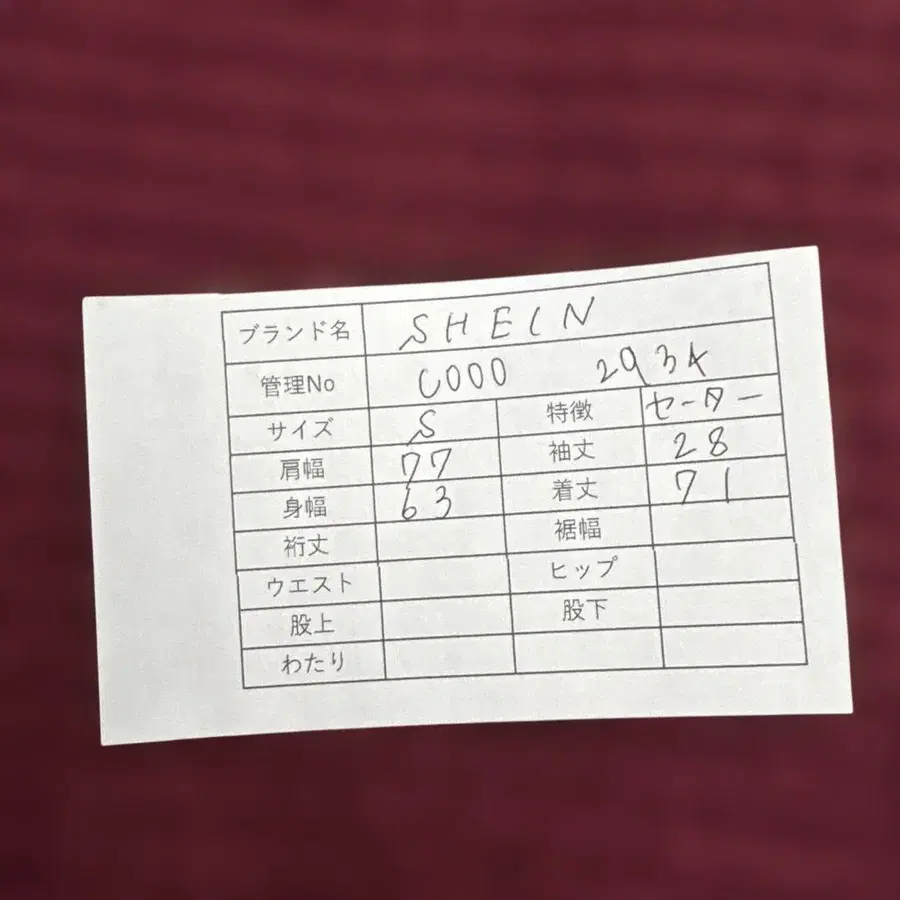 ブランド名 SHEIN
管理No C000 2934
サイズ S 特徴 セーター
肩幅 77 袖丈 28
身幅 63 着丈 71
裄丈 裾幅
ウエスト ヒップ
股上 股下
わたり